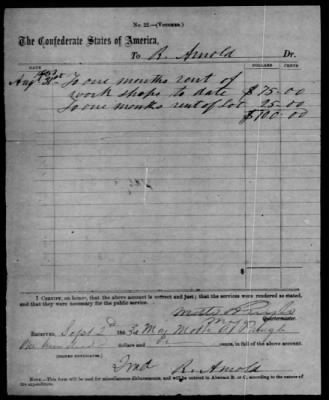 No. 22.—(VOUCHER.)
The Confederate States of America,
To R. Arnold Dr.
DATE DOLLARS CENTS
1863
Augt 31st To one months rent of
work shops to date $75.00
To one months rent of lot 25.00
$100.00
I CERTIFY, on honor, that the above account is correct and just; that the services were rendered as stated, and
that they were necessary for the public service.
Quartermaster.
RECEIVED, Sept 2d 1863 Maj
One hundred dollars and cents, in full of the above account.
(SIGNED DUPLICATES.)
R. Arnold
NOTE.—This form will be used for miscellaneous disbursements, and will be entered in Abstract B. or C., according to the nature of
the expenditure.